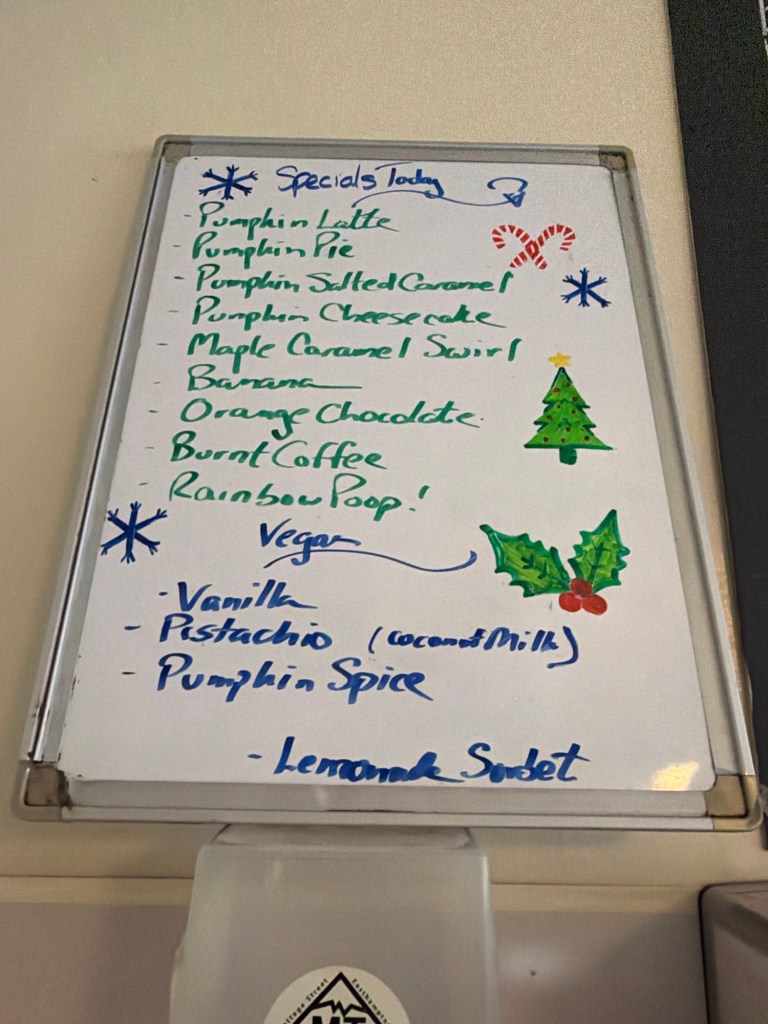 Specials Today
- Pumpkin Latte
- Pumpkin Pie
- Pumpkin Salted Caramel
- Pumpkin Cheesecake
- Maple Caramel Swirl
- Banana
- Orange Chocolate
- Burnt Coffee
- Rainbow Poop!
Vegan
- Vanilla
- Pistachio (coconut Milk)
- Pumpkin Spice
- Lemonade Sorbet
Cottage Street Easthampton
MT